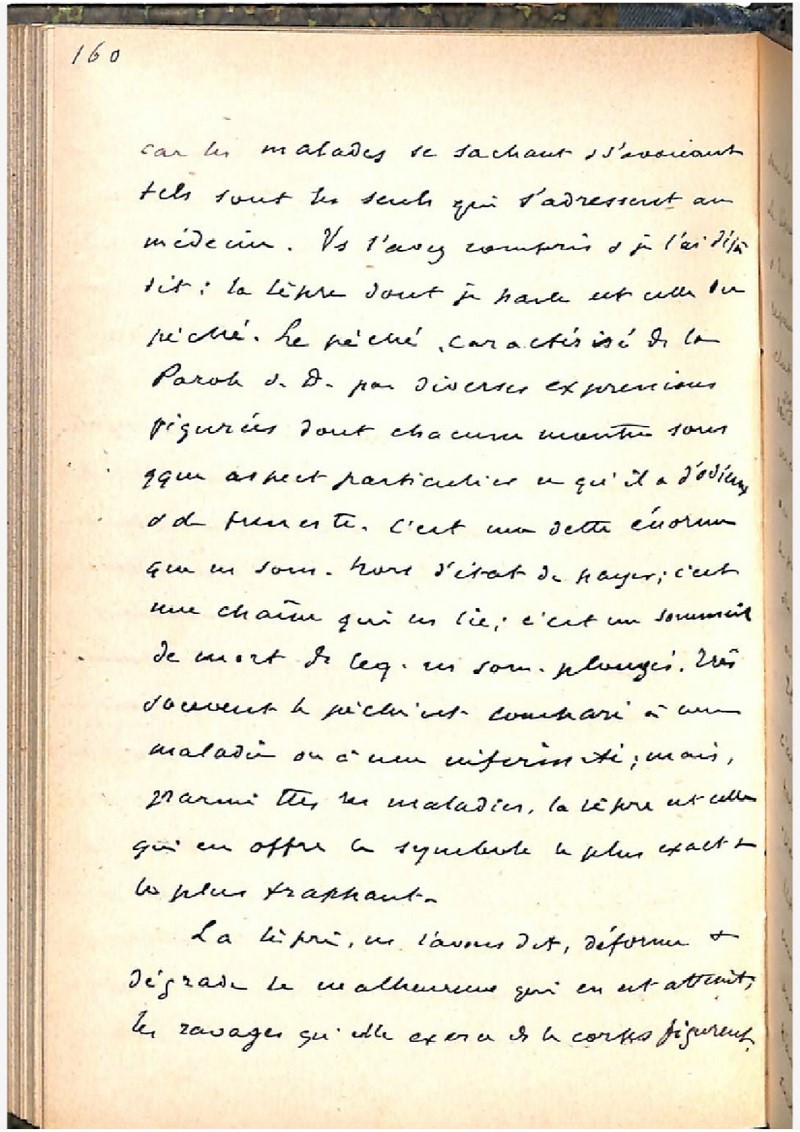 160
car les malades se sachant & s'avouant
tels sont les seuls qui s'adressent au
médecin. Vs l'avez compris & je l'ai déjà
dit : la lèpre dont je parle est celle du
péché. Le péché, caractérisé ds la
Parole d. D. par diverses expressions
figurées dont chacune montre sous
qque aspect particulier ce qu'il a d'odieux
& de funeste. C'est une dette énorme
que ns som. hors d'état de payer ; c'est
une chaîne qui ns lie ; c'est un sommeil
de mort ds leq. ns som. plongés. Très
souvent le péché est comparé à une
maladie ou à une infirmité ; mais,
parmi ttes les maladies, la lèpre est celle
qui en offre le symbole le plus exact &
le plus frappant.
La lèpre, ns l'avons dit, déforme &
dégrade le malheureux qui en est atteint ;
les ravages qu'elle exerce ds le corps figurent